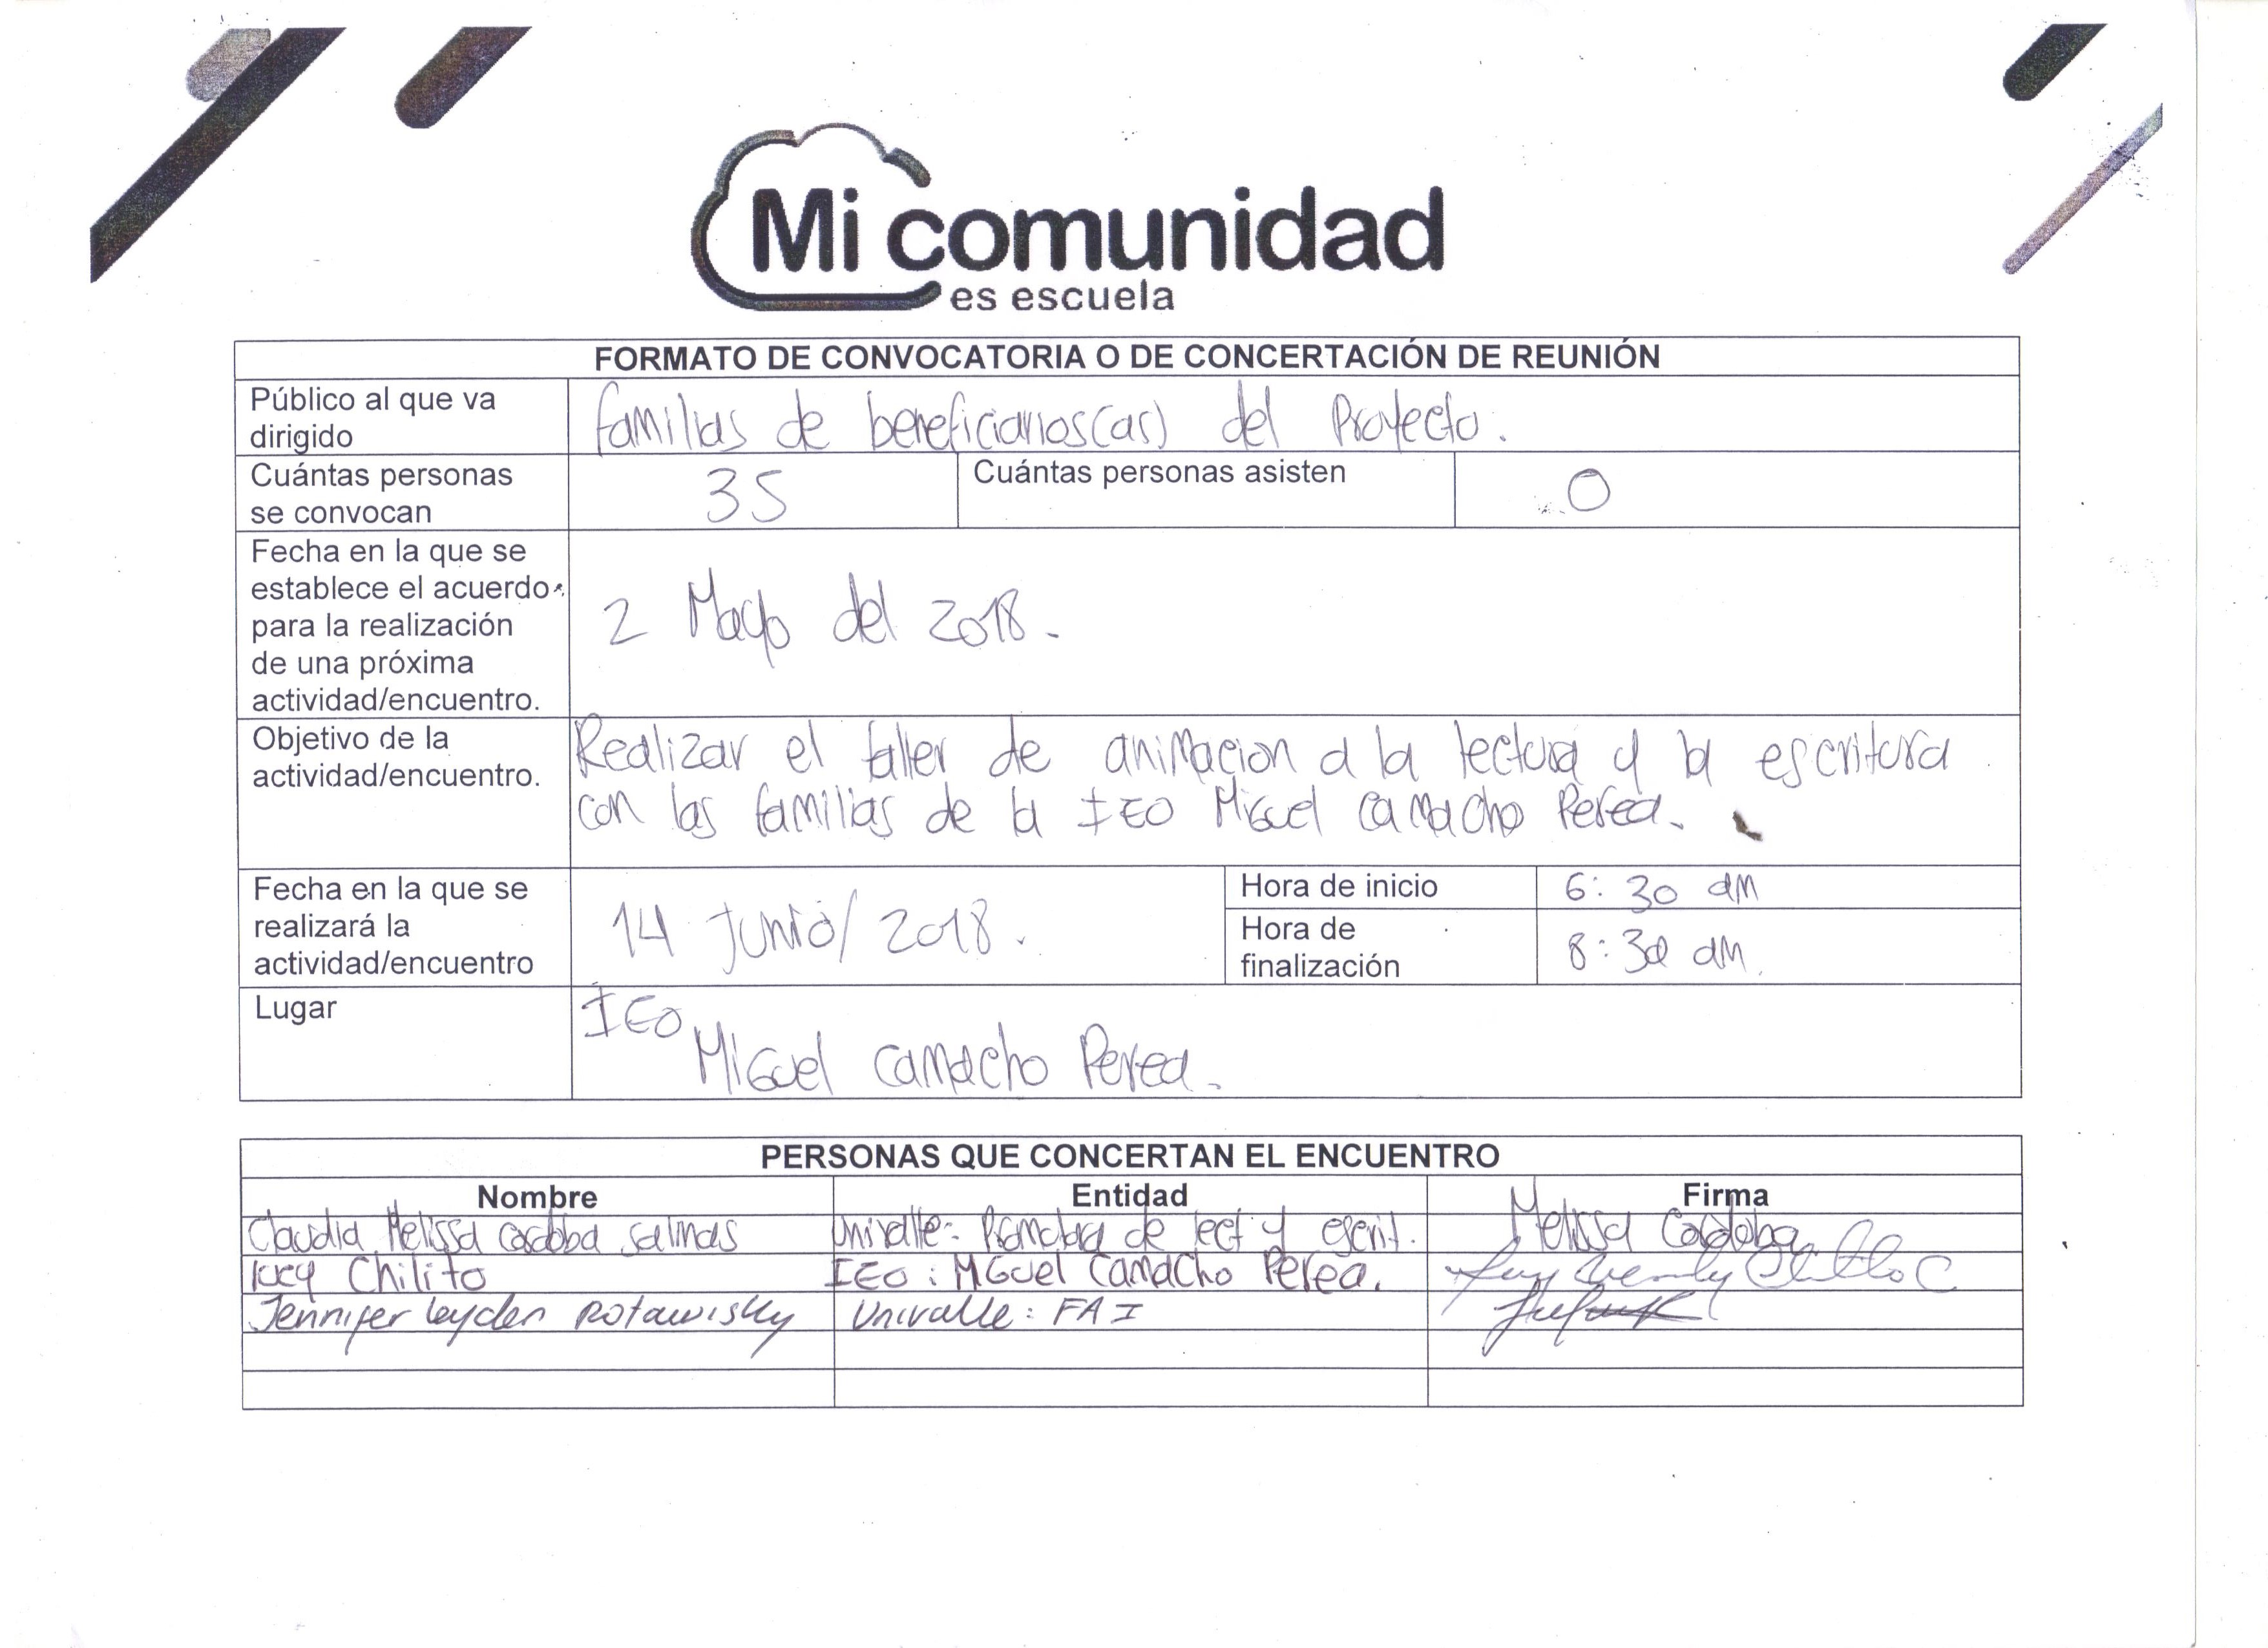 Mi comunidad
es escuela
FORMATO DE CONVOCATORIA O DE CONCERTACIÓN DE REUNIÓN
Público al que va
dirigido
familias de beneficiarios(as) del Proyecto.
Cuántas personas
se convocan
35
Cuántas personas asisten
0
Fecha en la que se
establece el acuerdo
para la realización
de una próxima
actividad/encuentro.
2 Mayo del 2018.
Objetivo de la
actividad/encuentro.
Realizar el taller de animacion a la lectura y la escritura
con las familias de la IEO Miguel Camacho Perea.
Fecha en la que se
realizará la
actividad/encuentro
14 Junio/2018.
Hora de inicio
6:30 am
Hora de
finalización
8:30 am.
Lugar
IEO
Miguel Camacho Perea.
PERSONAS QUE CONCERTAN EL ENCUENTRO
Nombre Entidad Firma
Claudia Melissa Cordoba Salinas Univalle: Promotora de lect y escrit. Melissa Cordoba
lucy Chilito IEO: Miguel Camacho Perea. Chilito C
Jennifer leyden Rotawisky Univalle: FAI